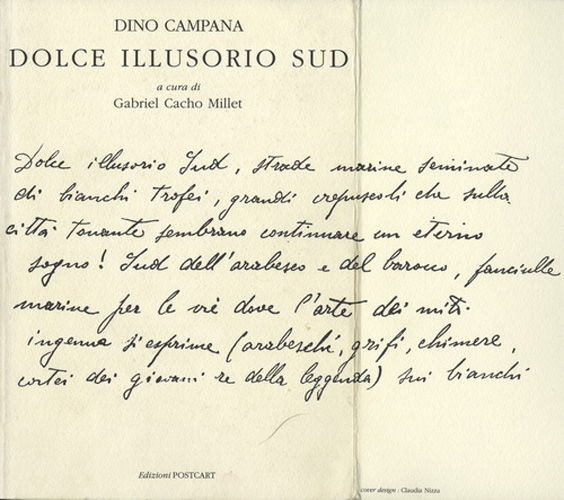 DINO CAMPANA
DOLCE ILLUSORIO SUD
a cura di
Gabriel Cacho Millet
Dolce illusorio Sud, strade marine seminate
di bianchi trofei, grandi crepuscoli che sulla
città tonante sembrano continuare un eterno
sogno! Sud dell'arabesco e del barocco, fanciulle
marine per le vie dove l'arte dei miti
ingenua si esprime (arabeschi, grifi, chimere,
cortei dei giovani re della leggenda) sui bianchi
Edizioni POSTCART
cover design : Claudia Nizza